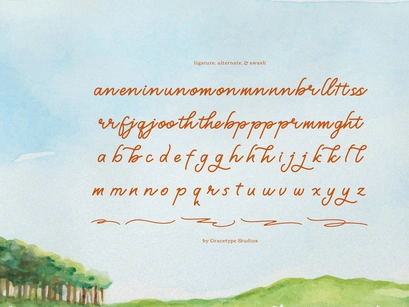 ligature, alternate, & swash
aneninunomonmnnnbrllttss
rrfjqjooththebpppprmmght
abbcdefgghhhijjkkll
mmnnopqrstuuvwxyyz
by Gracetype Studios